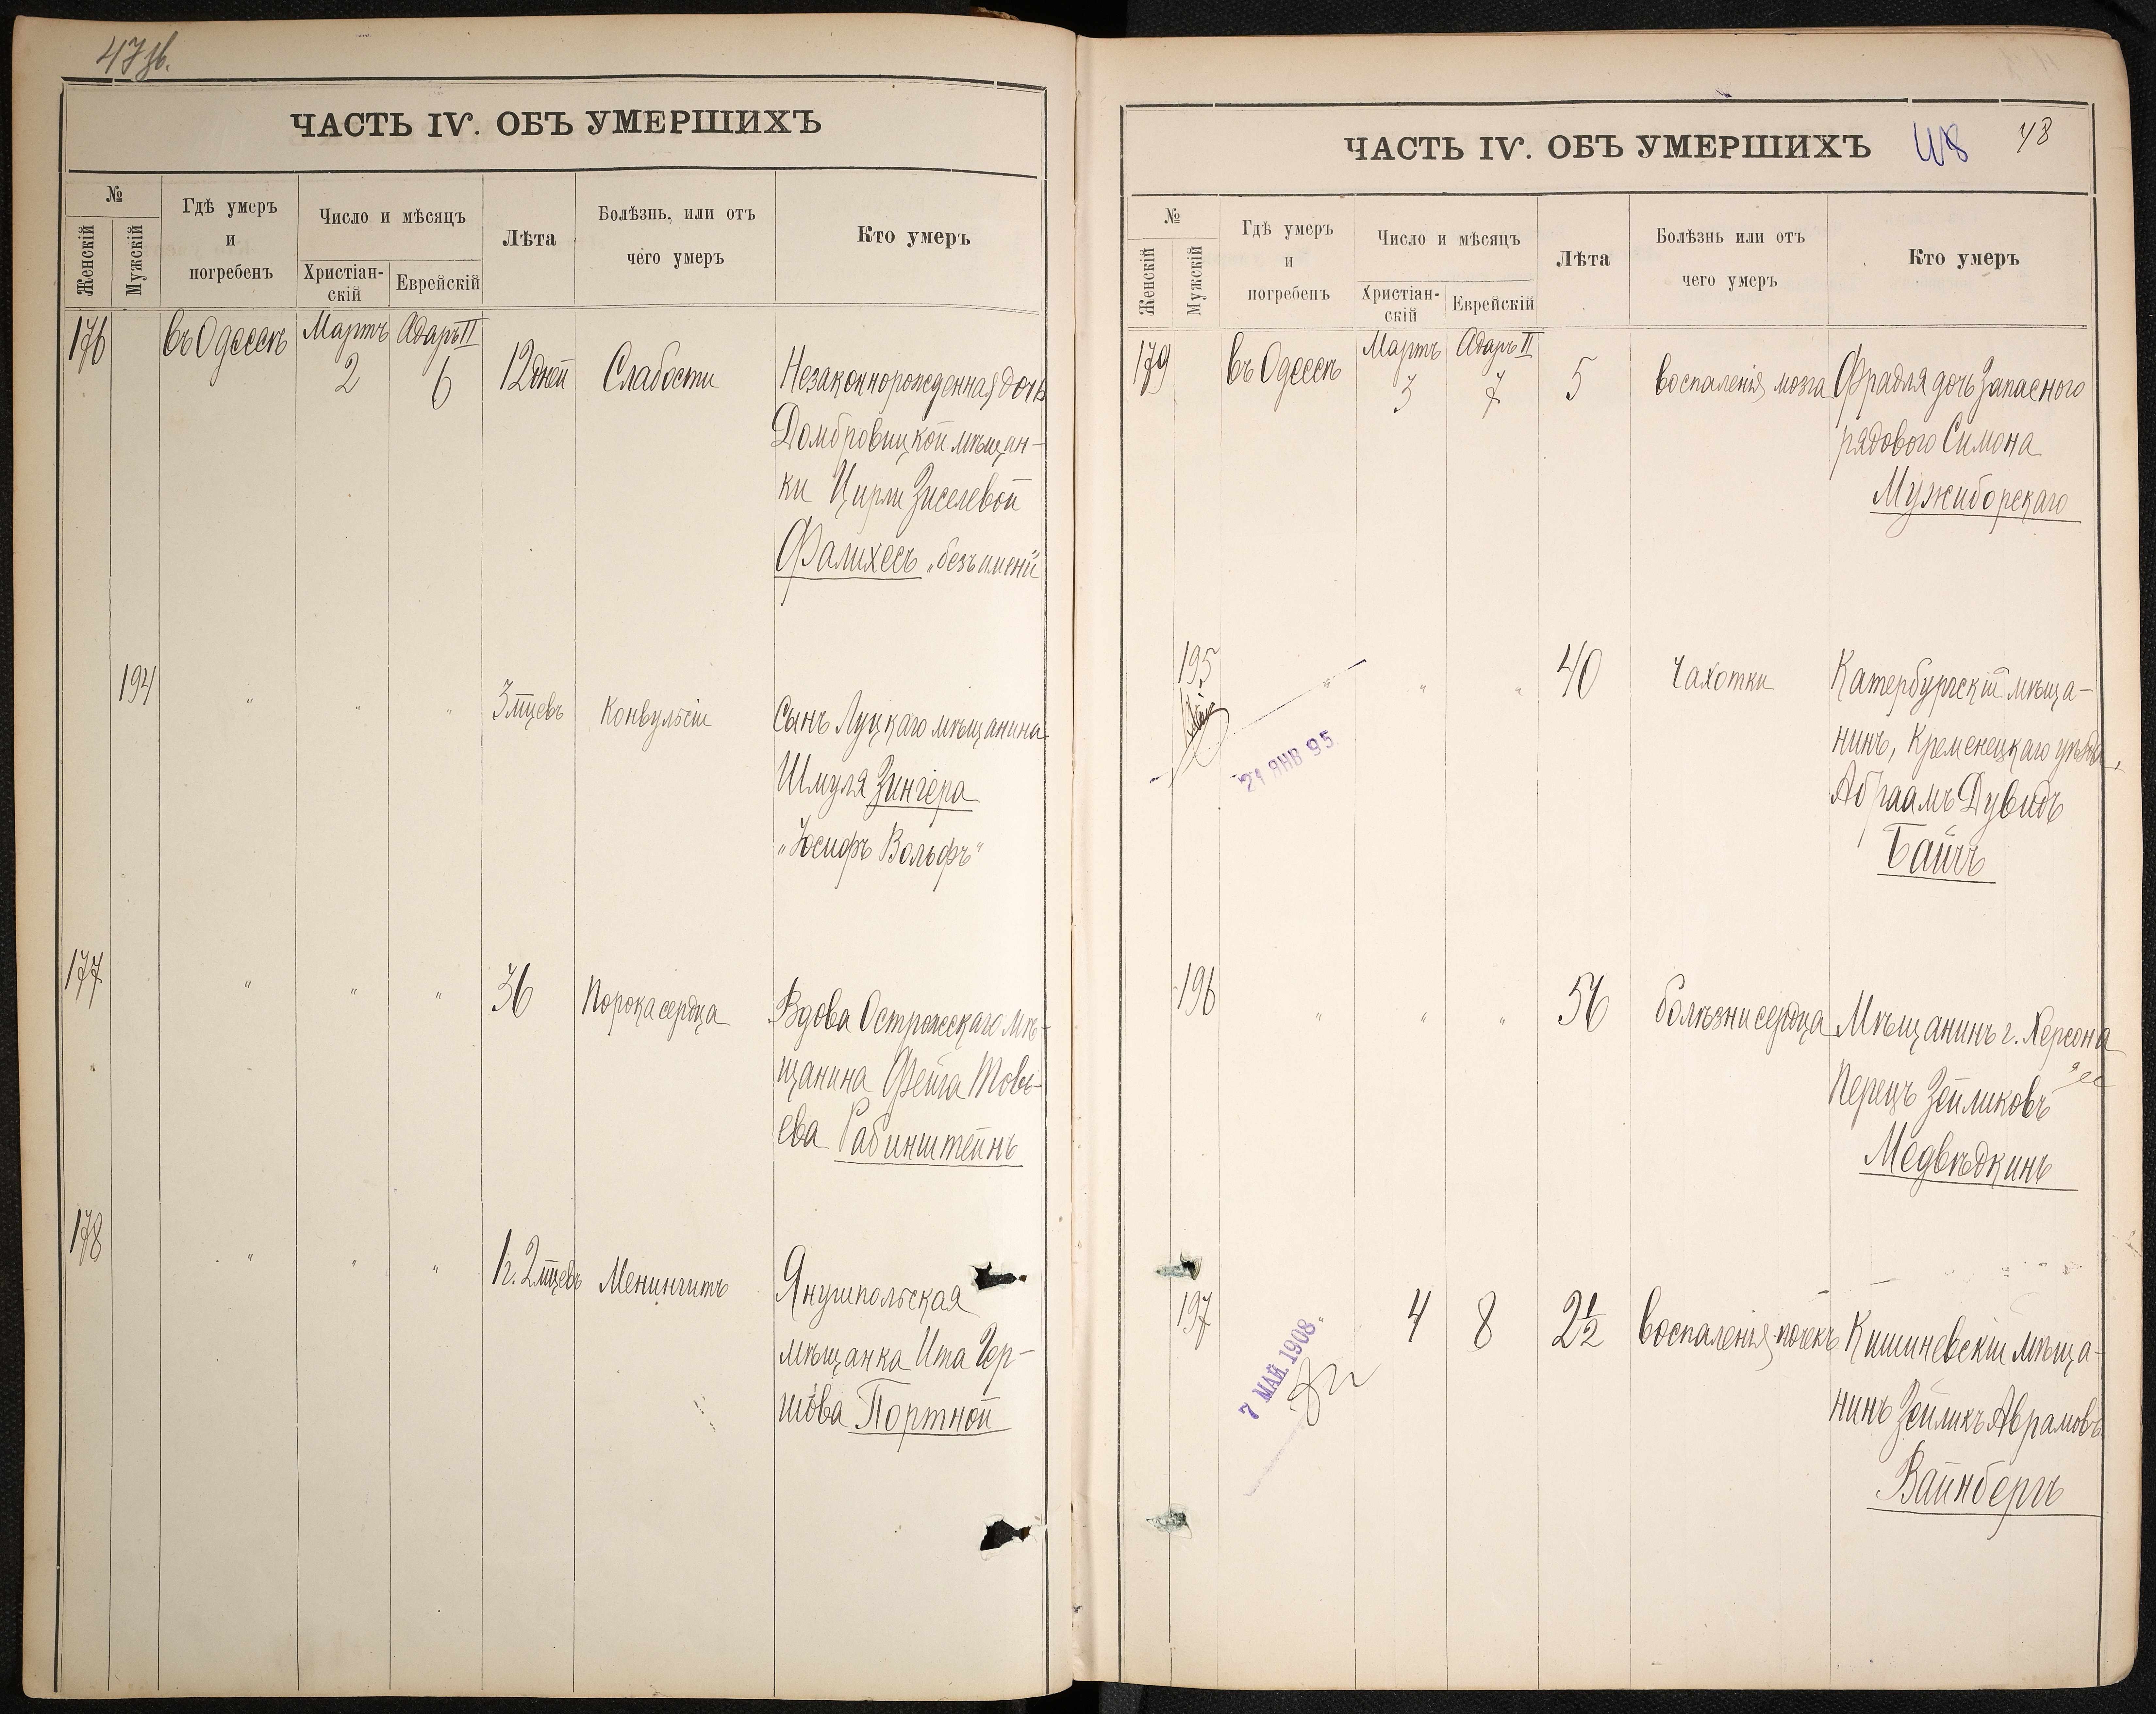 47 об.
ЧАСТЬ IV. ОБЪ УМЕРШИХЪ
№
Женскій
Мужскій
Гдѣ умеръ
и
погребенъ
Число и мѣсяцъ
Христіан-
скій
Еврейскій
Лѣта
Болѣзнь, или отъ
чего умеръ
Кто умеръ
176 въ Одессѣ Мартъ Адаръ II
2 6 12 дней Слабости Незаконнорожденная дочь
Домбровицкой мѣщан-
ки Цирли Зиселевой
Фалихесъ „безъ имени"
194 " " " 3 мцевъ Конвульсіи Сынъ Луцкаго мѣщанина
Шмуля Зингера
„Іосифъ Вольфъ"
177 " " " 36 Порока сердца Вдова Острожскаго мѣ-
щанина Фейга Товь-
ева Рабинштейнъ
178 " " " 1 г. 2 мцевъ Менингитъ Янушпольская
мѣщанка Ита Гер-
шова Портной
ЧАСТЬ IV. ОБЪ УМЕРШИХЪ
48
№
Женскій
Мужскій
Гдѣ умеръ
и
погребенъ
Число и мѣсяцъ
Христіан-
скій
Еврейскій
Лѣта
Болѣзнь или отъ
чего умеръ
Кто умеръ
179 въ Одессѣ Мартъ Адаръ II
3 7 5 воспаленія мозга Фрадля дочь Запасного
рядового Симона
Мужиборскаго
195 " " " 40 Чахотки Катербургскій мѣща-
нинъ, Кременецкаго уѣзда,
Абраамъ Дувидъ
Байчъ
21 ЯНВ 95
196 " " " 56 болѣзни сердца Мѣщанинъ г. Херсона
Перецъ Зейликовъ
Медвѣдкинъ
197 4 8 2½ воспаленія почекъ Кишиневскій мѣща-
нинъ Зейликъ Аврамовъ
Вайнбергъ
7 МАЙ. 1908.